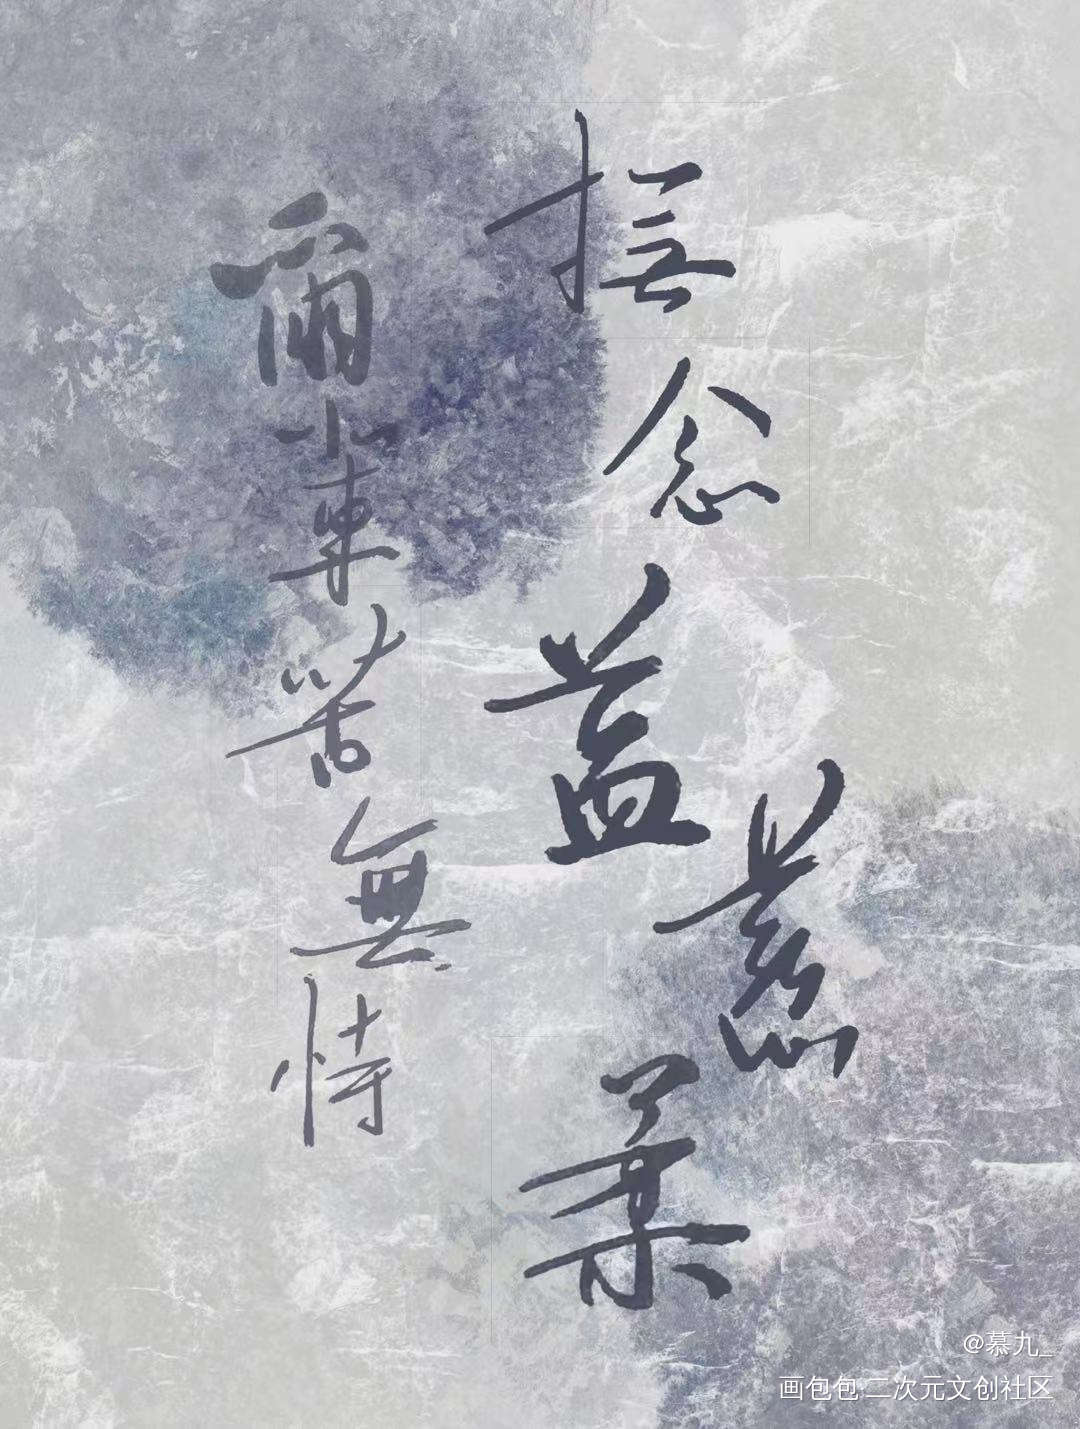 撫念益慈柔
爾輩苦無恃
@慕九_
画包包·二次元文创社区